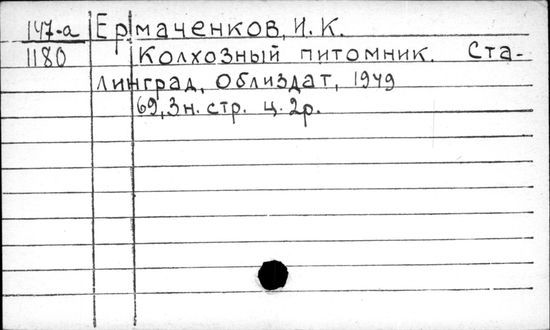 147-а Ермаченков, И. К.
1180 Колхозный питомник. Ста-
линград, Облиздат, 1949
69, 3 н. стр. ц. 2р.